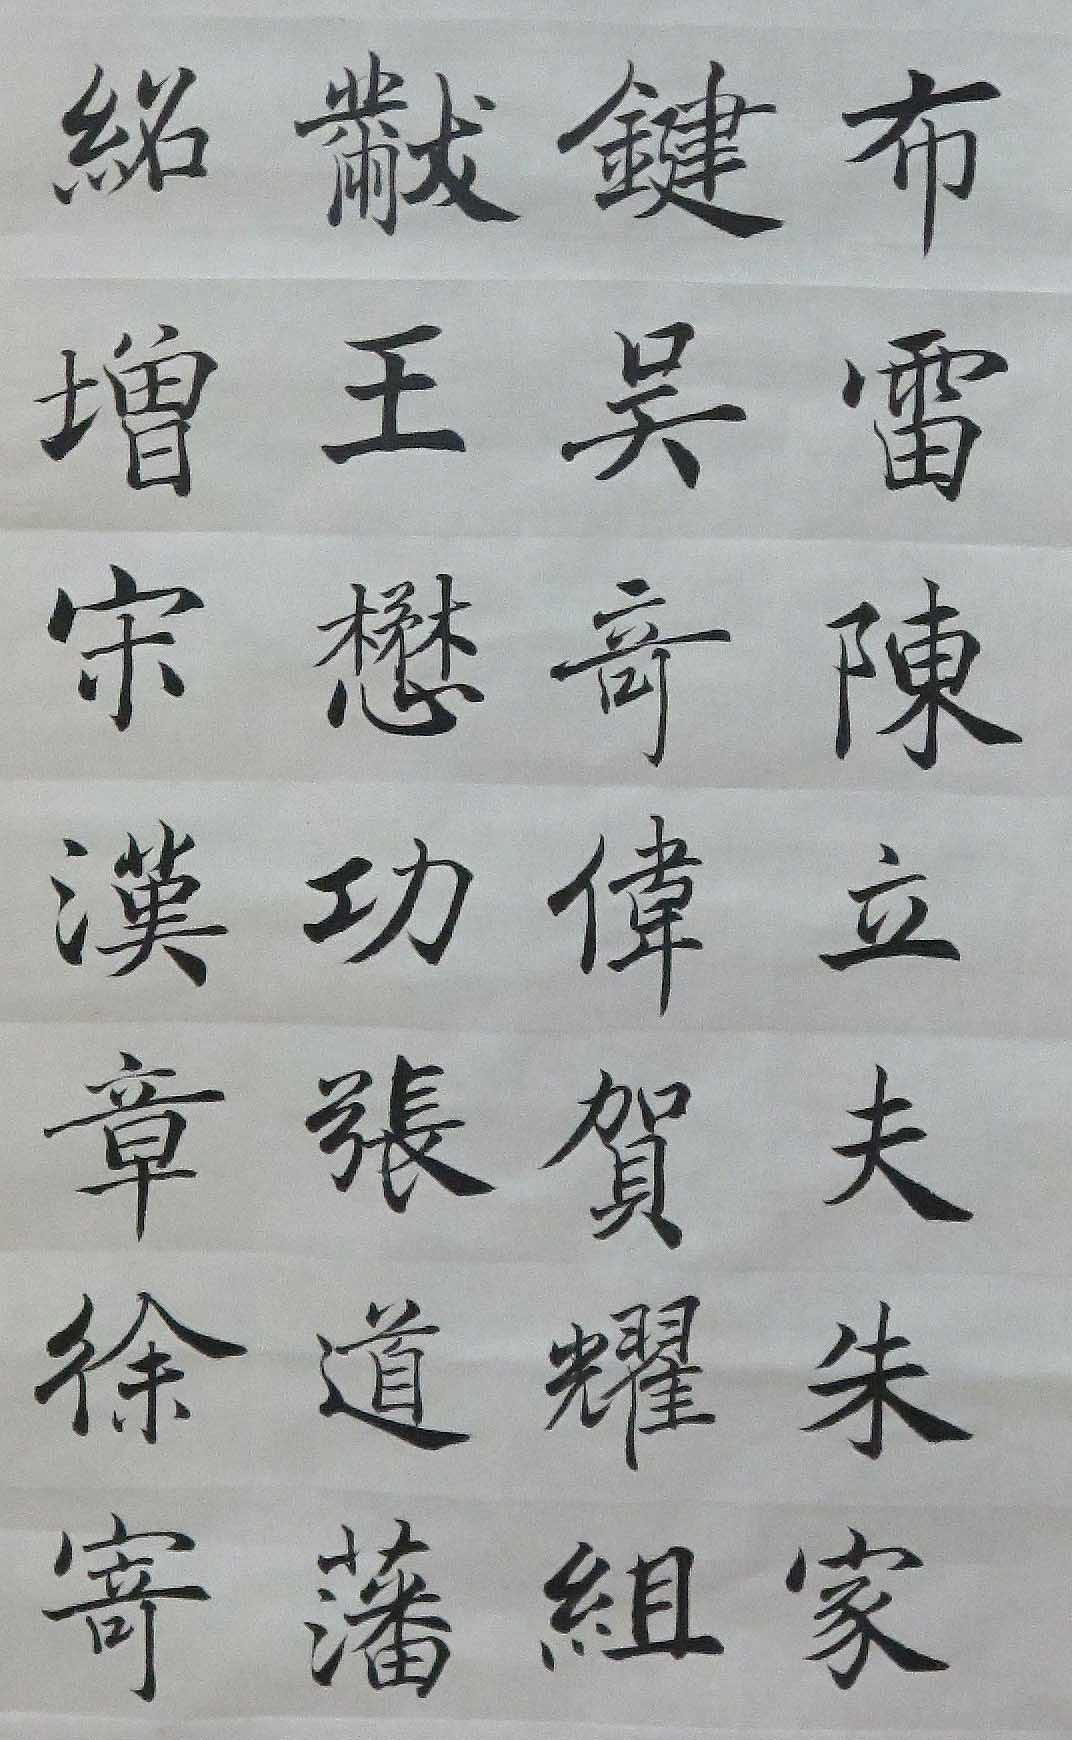 布雷陳立夫朱家
鍵吳奇偉賀耀組
黻王懋功張道藩
紹增宋漢章徐寄